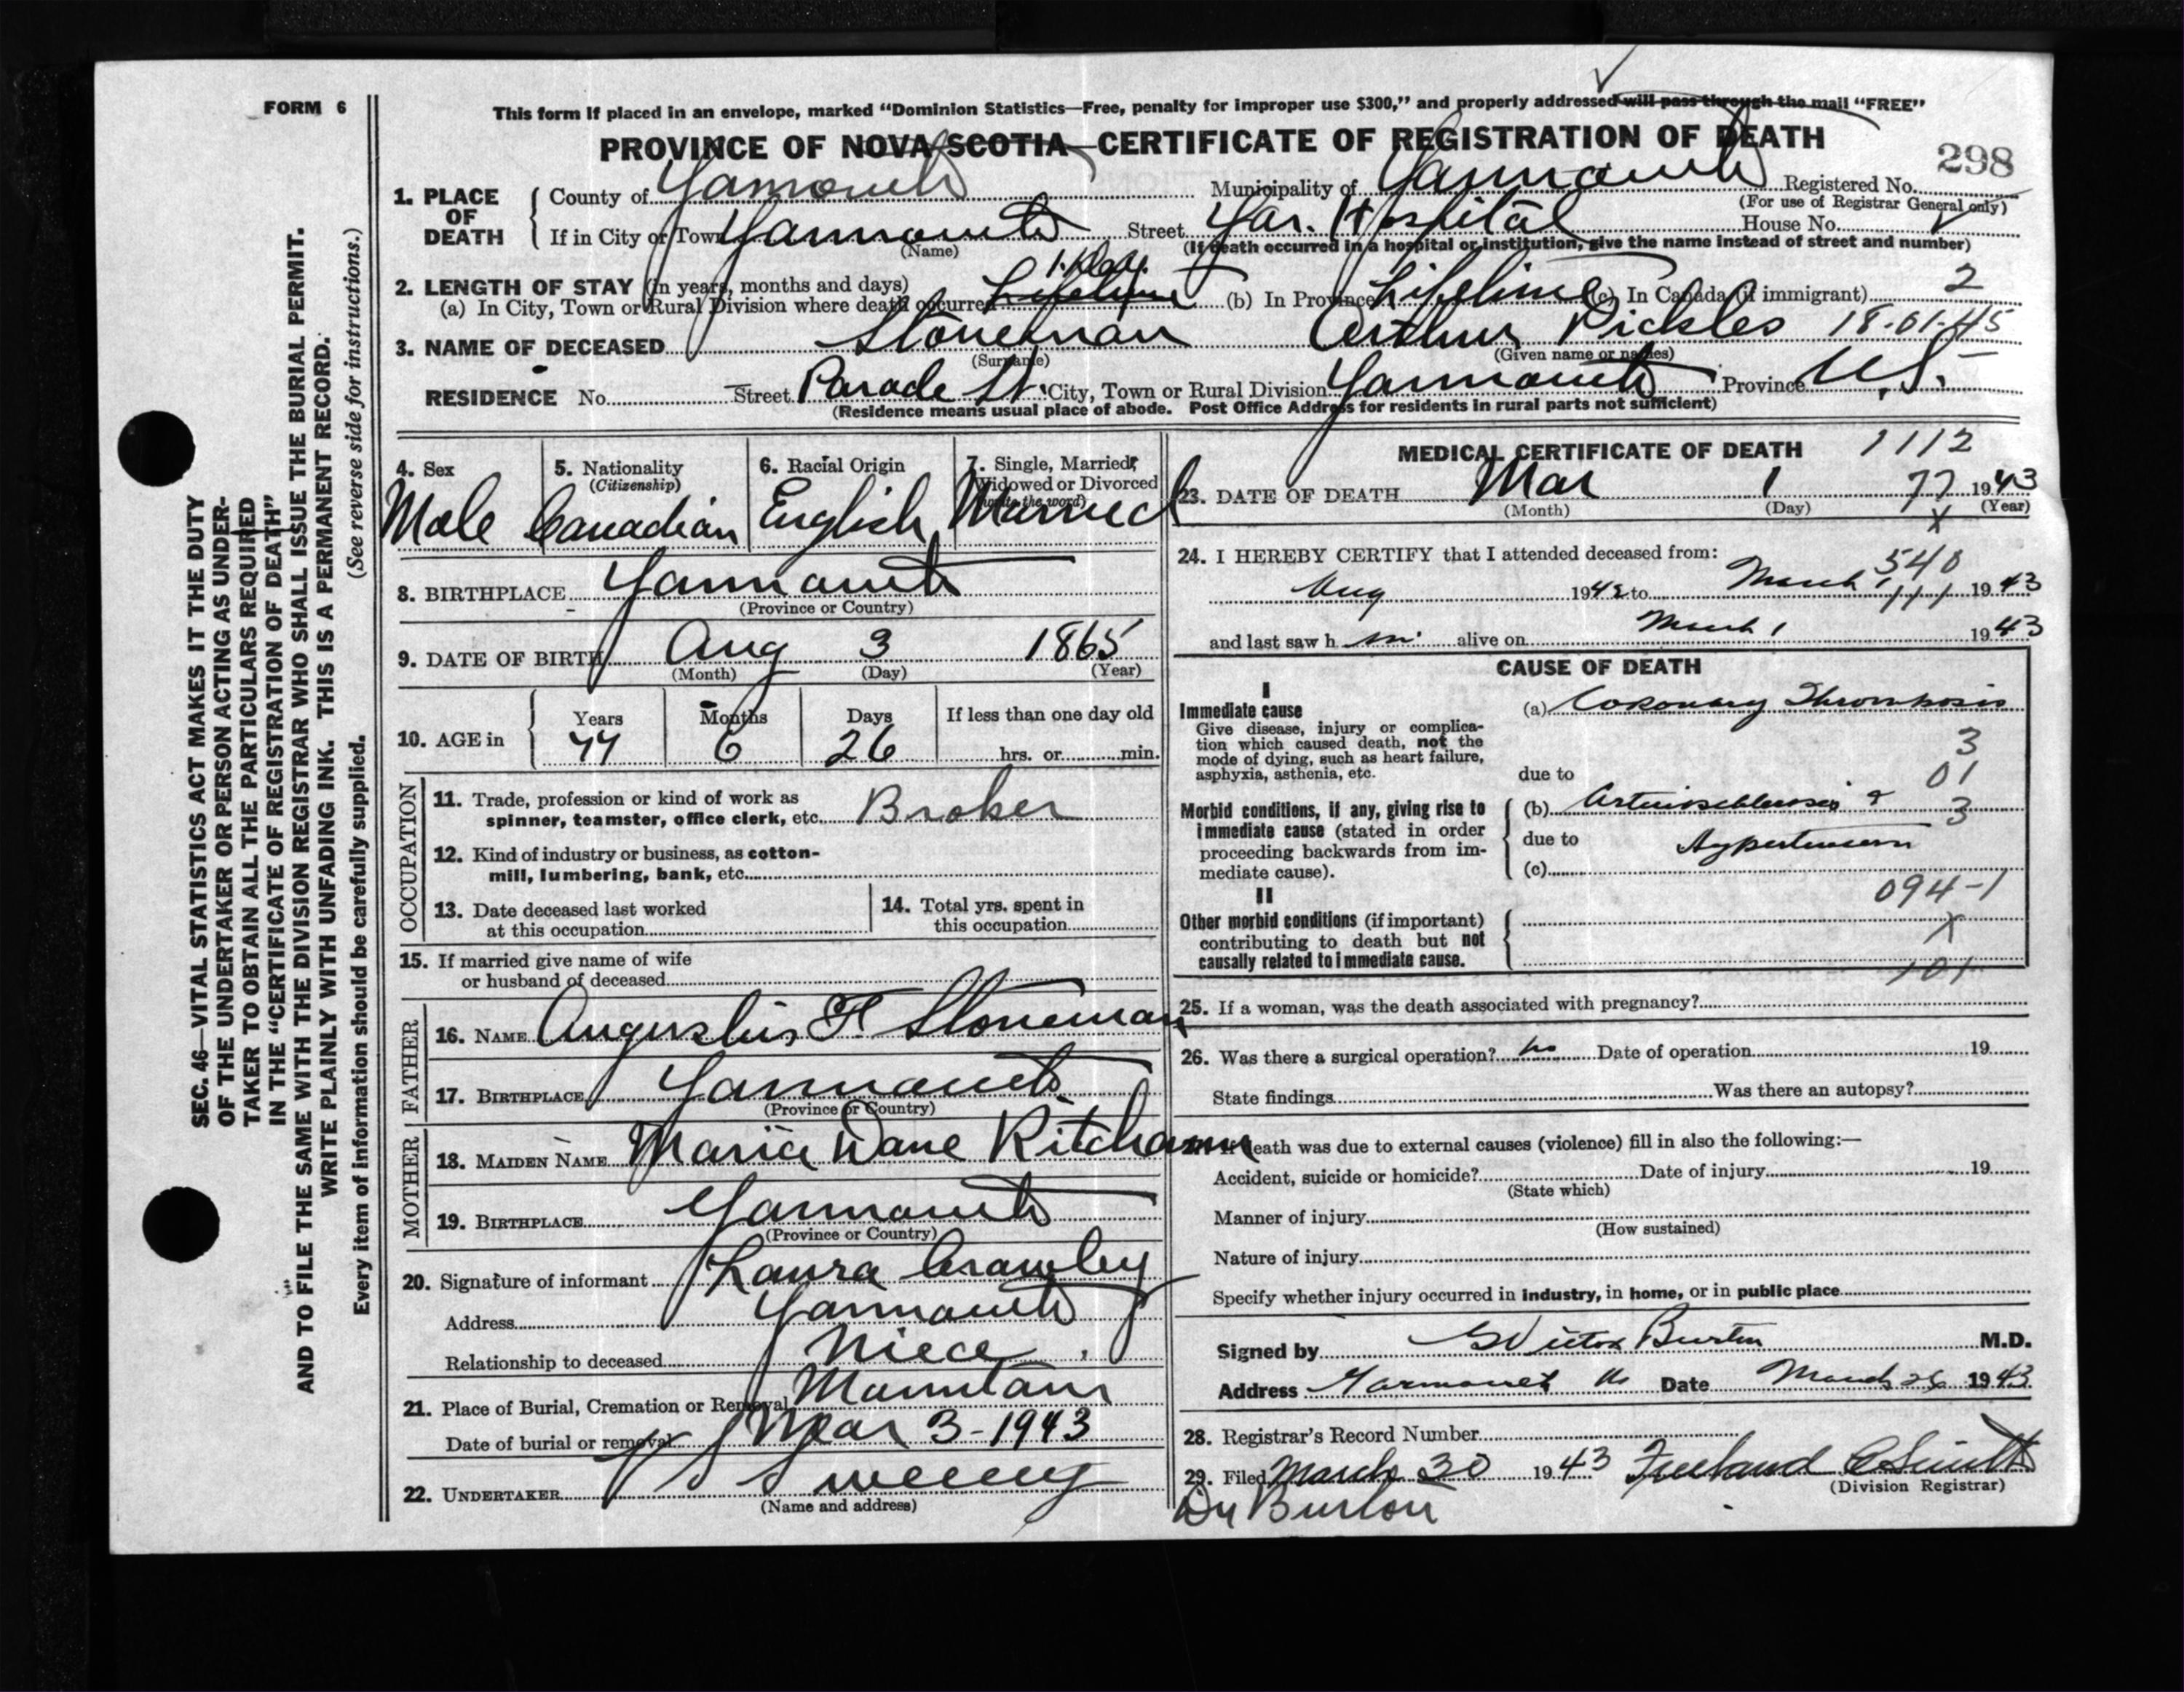 FORM 6
This form if placed in an envelope, marked “Dominion Statistics—Free, penalty for improper use $300,” and properly addressed will pass through the mail “FREE”
PROVINCE OF NOVA SCOTIA—CERTIFICATE OF REGISTRATION OF DEATH
298
1. PLACE OF DEATH { County of Yarmouth Municipality of Yarmouth Registered No.
(For use of Registrar General only)
If in City or Town Yarmouth Street Yar. Hospital House No.
(Name) (If death occurred in a hospital or institution, give the name instead of street and number)
1. day.
2. LENGTH OF STAY (in years, months and days)
(a) In City, Town or Rural Division where death occurred Lifetime (b) In Province Lifetime (c) In Canada (if immigrant) 2
3. NAME OF DECEASED Stoneman Arthur Pickles 18-01-45
(Surname) (Given name or names)
RESIDENCE No. Street Parade St. City, Town or Rural Division Yarmouth Province N.S.
(Residence means usual place of abode. Post Office Address for residents in rural parts not sufficient)
4. Sex 5. Nationality 6. Racial Origin 7. Single, Married,
(Citizenship) Widowed or Divorced
(write the word)
Male Canadian English Married
8. BIRTHPLACE Yarmouth
(Province or Country)
9. DATE OF BIRTH Aug 3 1865
(Month) (Day) (Year)
10. AGE in { Years Months Days If less than one day old
77 6 26 hrs. or min.
OCCUPATION
11. Trade, profession or kind of work as
spinner, teamster, office clerk, etc. Broker
12. Kind of industry or business, as cotton-
mill, lumbering, bank, etc.
13. Date deceased last worked
at this occupation
14. Total yrs. spent in
this occupation
15. If married give name of wife
or husband of deceased
FATHER
16. NAME Augustus F. Stoneman
17. BIRTHPLACE Yarmouth
(Province or Country)
MOTHER
18. MAIDEN NAME Maria Dane
19. BIRTHPLACE Yarmouth
(Province or Country)
20. Signature of informant Laura Crawley
Address Yarmouth
Relationship to deceased Niece
21. Place of Burial, Cremation or Removal Mountain
Date of burial or removal Mar 3-1943
22. UNDERTAKER V S Sweeny
(Name and address)
MEDICAL CERTIFICATE OF DEATH 1112
23. DATE OF DEATH Mar 1 77 1943
(Month) (Day) (Year)
X
24. I HEREBY CERTIFY that I attended deceased from: 540
Aug 1942 to March 1 111 1943
and last saw h im alive on March 1 1943
CAUSE OF DEATH
I
Immediate cause (a) Coronary Thrombosis
Give disease, injury or complica-
tion which caused death, not the
mode of dying, such as heart failure,
asphyxia, asthenia, etc. due to
3
01
Morbid conditions, if any, giving rise to (b) Arteriosclerosis & 3
immediate cause (stated in order
proceeding backwards from im- due to Hypertension
mediate cause). (c)
II 094-1
Other morbid conditions (if important)
contributing to death but not X
causally related to immediate cause. 101
25. If a woman, was the death associated with pregnancy?
26. Was there a surgical operation? no Date of operation 19
State findings Was there an autopsy?
eath was due to external causes (violence) fill in also the following:—
Accident, suicide or homicide? Date of injury 19
(State which)
Manner of injury
(How sustained)
Nature of injury
Specify whether injury occurred in industry, in home, or in public place
Signed by G Victor Burton M.D.
Address Yarmouth NS Date March 26 1943
28. Registrar’s Record Number
29. Filed March 30 1943 Freeland C Smith
(Division Registrar)
Dr Burton
SEC. 46—VITAL STATISTICS ACT MAKES IT THE DUTY
OF THE UNDERTAKER OR PERSON ACTING AS UNDER-
TAKER TO OBTAIN ALL THE PARTICULARS REQUIRED
IN THE “CERTIFICATE OF REGISTRATION OF DEATH”
AND TO FILE THE SAME WITH THE DIVISION REGISTRAR WHO SHALL ISSUE THE BURIAL PERMIT.
WRITE PLAINLY WITH UNFADING INK. THIS IS A PERMANENT RECORD.
Every item of information should be carefully supplied. (See reverse side for instructions.)